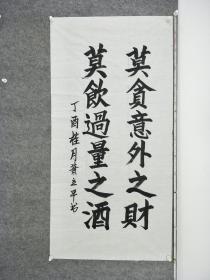 莫貪意外之財
莫飲過量之酒
丁酉桂月黄立平书